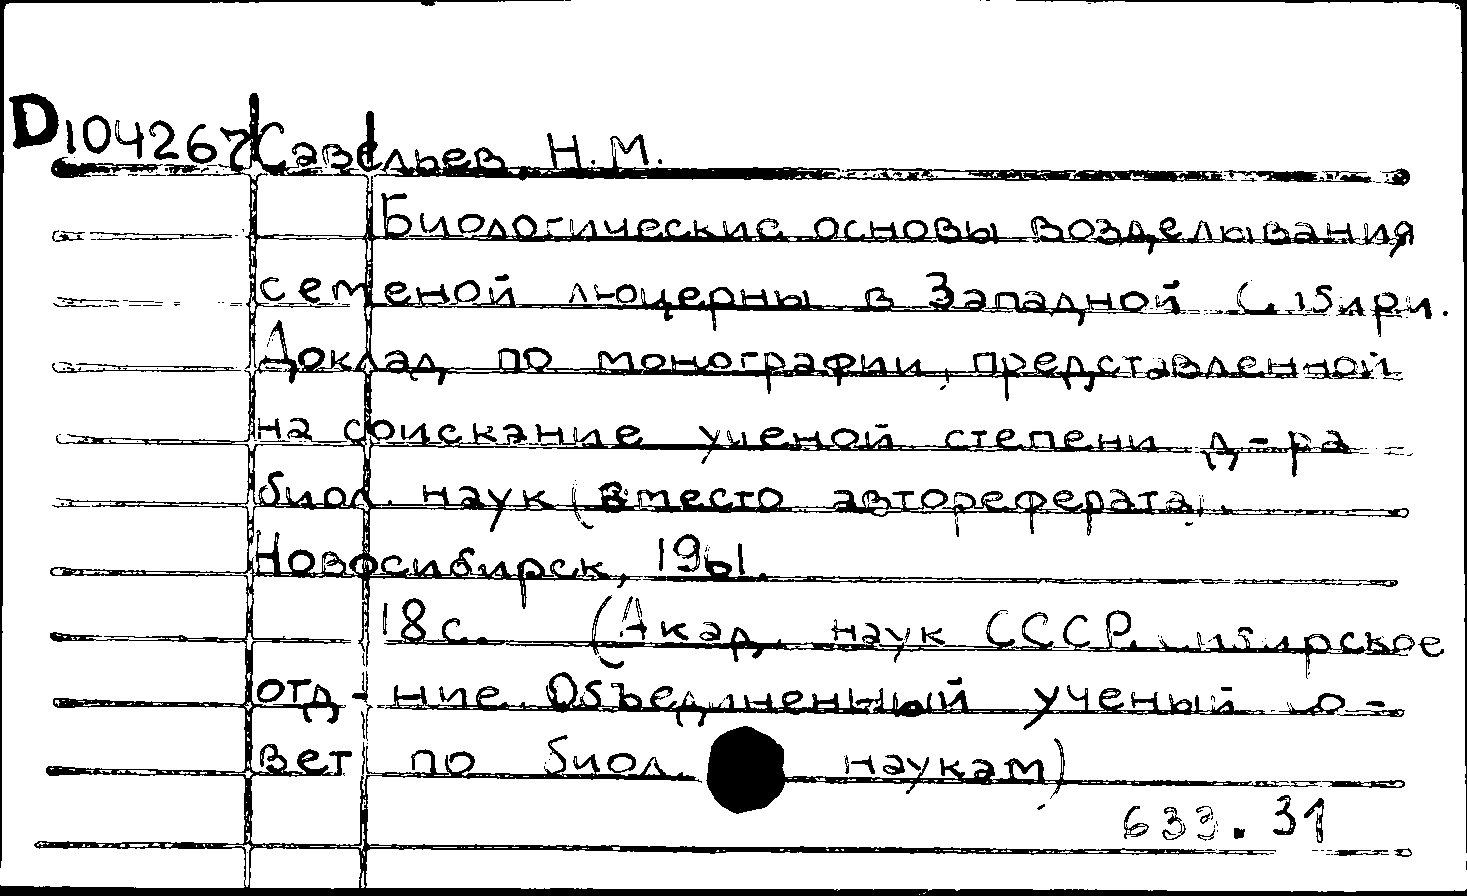 D104267 Савельев, Н.М.
Биологические основы возделывания
семеной люцерны в Западной Сибири.
Доклад по монографии, представленной
на соискание ученой степени д-ра
биол. наук (вместо автореферата).
Новосибирск, 1961.
18 с. (Акад. наук СССР. Сибирское
отд-ние. Объединенный ученый со-
вет по биол. наукам)
633.31